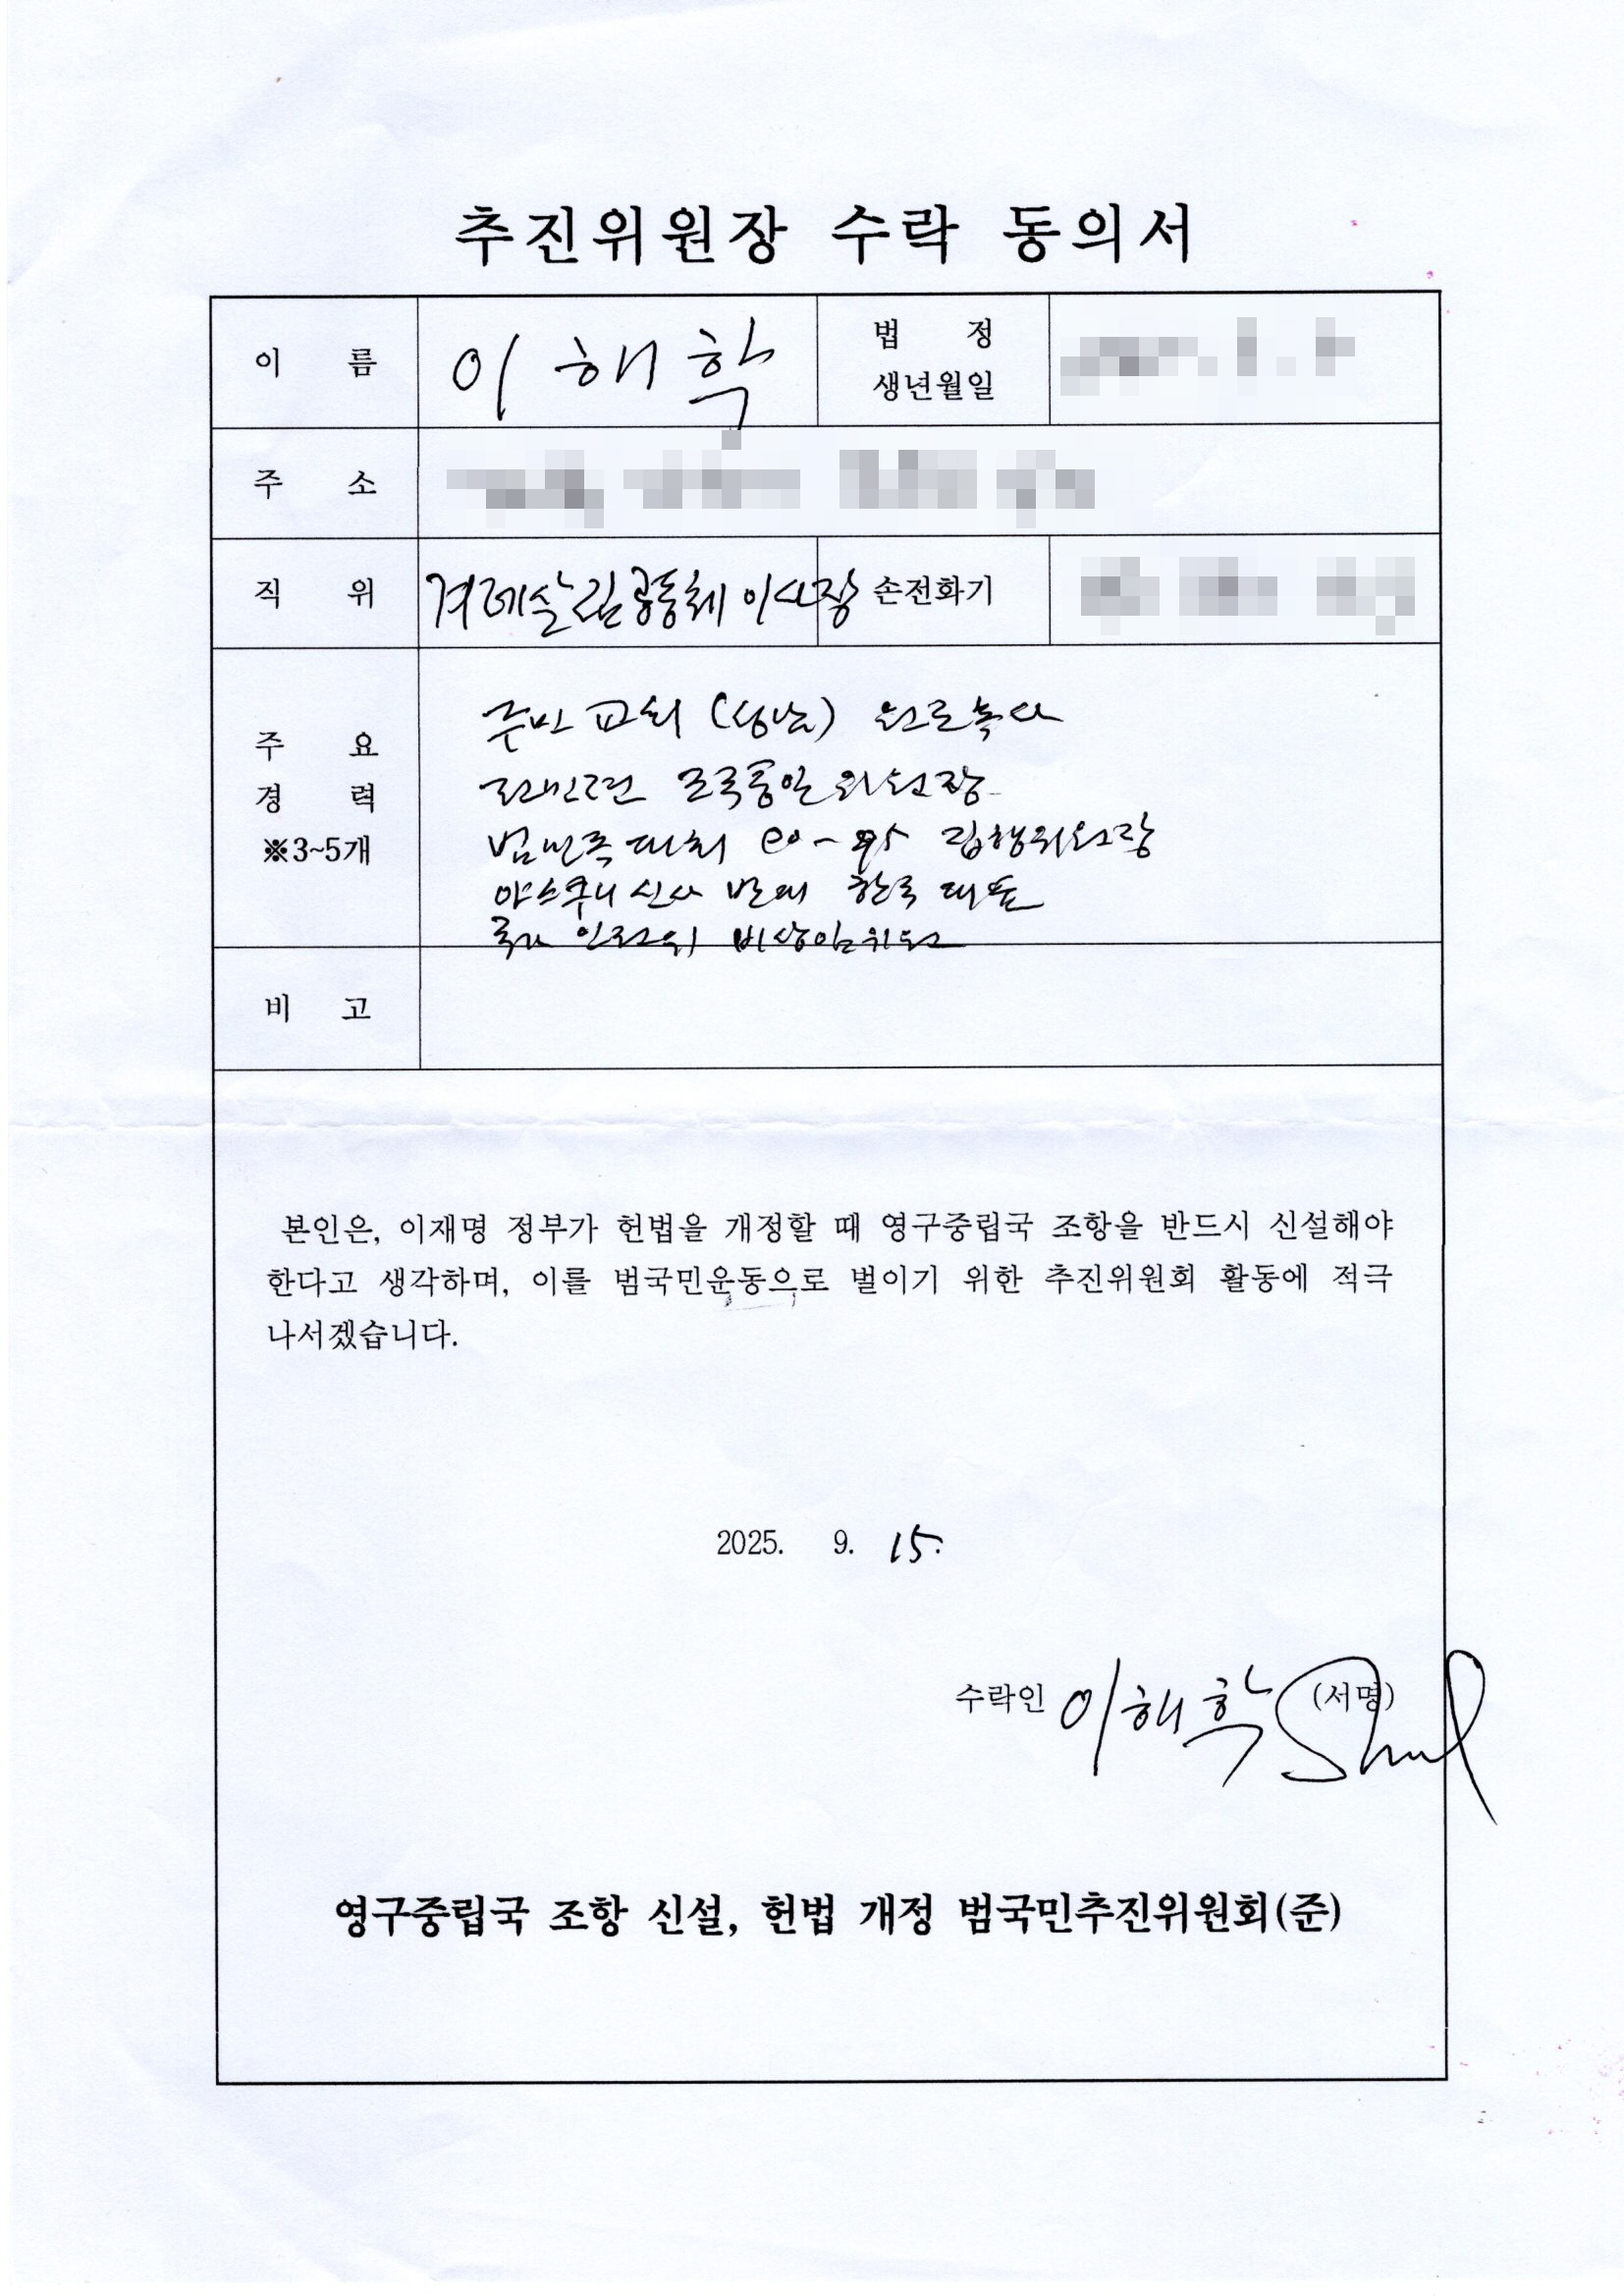 추진위원장 수락 동의서
이 름 이 해 학 법 정 생년월일
주 소
직 위 겨레살림공동체 이사장 손전화기
주 요 경 력 ※3~5개
주민교회 (성남) 원로목사
전민련 조국통일위원장
범민족대회 90~95 집행위원장
야스쿠니신사 반대 한국 대표
국가 인권위 비상임위원
비 고
본인은, 이재명 정부가 헌법을 개정할 때 영구중립국 조항을 반드시 신설해야
한다고 생각하며, 이를 범국민운동으로 벌이기 위한 추진위원회 활동에 적극
나서겠습니다.
2025. 9. 15.
수락인 이해학 (서명)
영구중립국 조항 신설, 헌법 개정 범국민추진위원회(준)